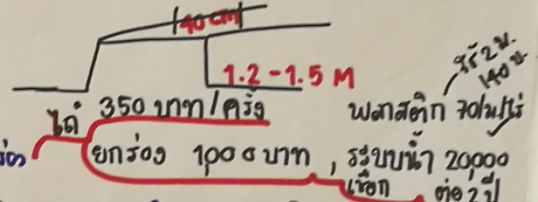 40 cm
1.2-1.5 M
ใช้ 2 ม.
140 บ.
ไถ 350 บาท/ครั้ง
พลาสติก 70/ม/ไร่
ยกร่อง 1,000 บาท, ระบบน้ำ 20,000
เชือก ต่อ 2 ปี